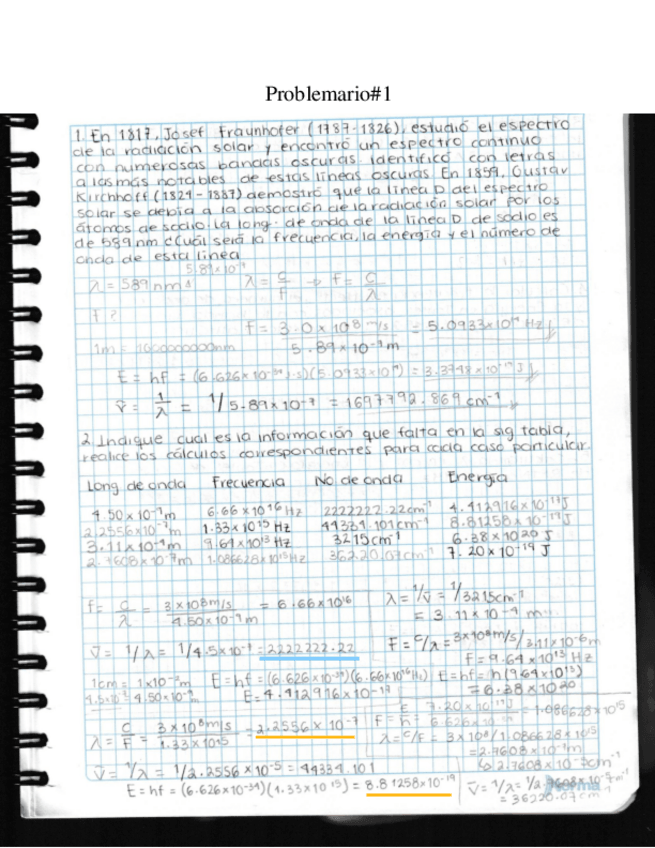 Problemario#1
1. En 1817, Josef Fraunhofer (1787-1826), estudió el espectro
de la radiación solar y encontró un espectro continuo
con numerosas bandas oscuras identificó con letras
a las más notables de estas líneas oscuras. En 1859, Gustav
Kirchhoff (1824-1887) demostró que la línea D del espectro
solar se debía a la absorción de la radiación solar por los
átomos de sodio. La long. de onda de la línea D de sodio es
de 589 nm ¿Cuál será la frecuencia, la energía y el número de
onda de esta línea
λ = 589 nm λ = c/f → f = c/λ
f ?
f = 3.0 x 10⁸ m/s / 5.89 x 10⁻⁷ m = 5.0933 x 10¹⁴ Hz
1m = 1000000000nm
E = hf = (6.626x10⁻³⁴ J.s)(5.0933x10¹⁴) = 3.3748x10⁻¹⁹ J
ṽ = 1/λ = 1/5.89x10⁻⁷ = 1697792.869 cm⁻¹
2. Indique cual es la información que falta en la sig tabla,
realice los cálculos correspondientes para cada caso particular.
Long de onda Frecuencia No de onda Energía
4.50x10⁻⁹m 6.66x10¹⁶Hz 2222222.22cm⁻¹ 4.412916x10⁻¹⁷J
2.2556x10⁻⁷m 1.33x10¹⁵Hz 44334.101cm⁻¹ 8.81258x10⁻¹⁹J
9.64x10¹³Hz 3215cm⁻¹ 6.38x10²⁰ J
2.7608x10⁻⁷m 1.086628x10¹⁵Hz 36220.07cm⁻¹ 7.20x10⁻¹⁹ J
f = c/λ = 3x10⁸m/s / 4.50x10⁻⁹m = 6.66x10¹⁶
λ = 1/ṽ = 1/3215cm⁻¹
= 3.11 x 10⁻⁴ m
ṽ = 1/λ = 1/4.5x10⁻⁷ = 2222222.22
F = c/λ = 3x10⁸m/s / 3.11x10⁻⁶m
f = 9.64x10¹³ Hz
1cm = 1x10⁻²m E = hf = (6.626x10⁻³⁴)(6.66x10¹⁶Hz)
4.50x10⁻⁹m E = 4.412916x10⁻¹⁷
E = hf = h(9.64x10¹³)
= 6.38x10²⁰
λ = c/F = 3x10⁸m/s / 1.33x10¹⁵ = 2.2556 x 10⁻⁷
= 1.086628x10¹⁵
λ = c/F = 3x10⁸/1.086628x10¹⁵
= 2.7608x10⁻⁷m
ṽ = 1/λ = 1/2.2556x10⁻⁵ = 44334.101
E = hf = (6.626x10⁻³⁴)(1.33x10¹⁵) = 8.81258x10⁻¹⁹
= 36220.07cm⁻¹